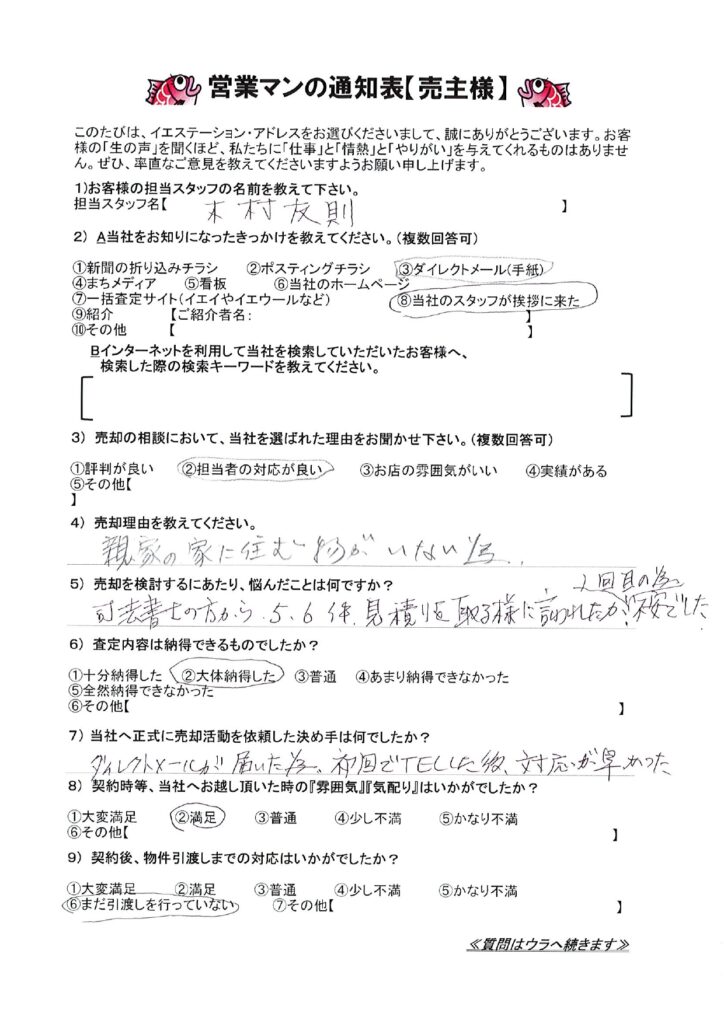 営業マンの通知表【売主様】
このたびは、イエステーション・アドレスをお選びくださいまして、誠にありがとうございます。お客
様の「生の声」を聞くほど、私たちに「仕事」と「情熱」と「やりがい」を与えてくれるものはありませ
ん。ぜひ、率直なご意見を教えてくださいますようお願い申し上げます。
1)お客様の担当スタッフの名前を教えて下さい。
担当スタッフ名【 木村友則 】
2) A当社をお知りになったきっかけを教えてください。(複数回答可)
①新聞の折り込みチラシ ②ポスティングチラシ ③ダイレクトメール(手紙)
④まちメディア ⑤看板 ⑥当社のホームページ
⑦一括査定サイト(イエイやイエウールなど) ⑧当社のスタッフが挨拶に来た
⑨紹介 【ご紹介者名: 】
⑩その他 【 】
Bインターネットを利用して当社を検索していただいたお客様へ、
検索した際の検索キーワードを教えてください。
3) 売却の相談において、当社を選ばれた理由をお聞かせ下さい。(複数回答可)
①評判が良い ②担当者の対応が良い ③お店の雰囲気がいい ④実績がある
⑤その他【
】
4) 売却理由を教えてください。
親家の家に住む物がいない為、
5) 売却を検討するにあたり、悩んだことは何ですか?
2回目の為
司法書士の方から、5、6件、見積りを取る様に言われたが、不安でした
6) 査定内容は納得できるものでしたか?
①十分納得した ②大体納得した ③普通 ④あまり納得できなかった
⑤全然納得できなかった
⑥その他【 】
7) 当社へ正式に売却活動を依頼した決め手は何でしたか?
ダイレクトメールが届いた為。初回でTELした後、対応が早かった
8) 契約時等、当社へお越し頂いた時の『雰囲気』『気配り』はいかがでしたか?
①大変満足 ②満足 ③普通 ④少し不満 ⑤かなり不満
⑥その他【 】
9) 契約後、物件引渡しまでの対応はいかがでしたか?
①大変満足 ②満足 ③普通 ④少し不満 ⑤かなり不満
⑥まだ引渡しを行っていない ⑦その他【 】
≪質問はウラへ続きます≫